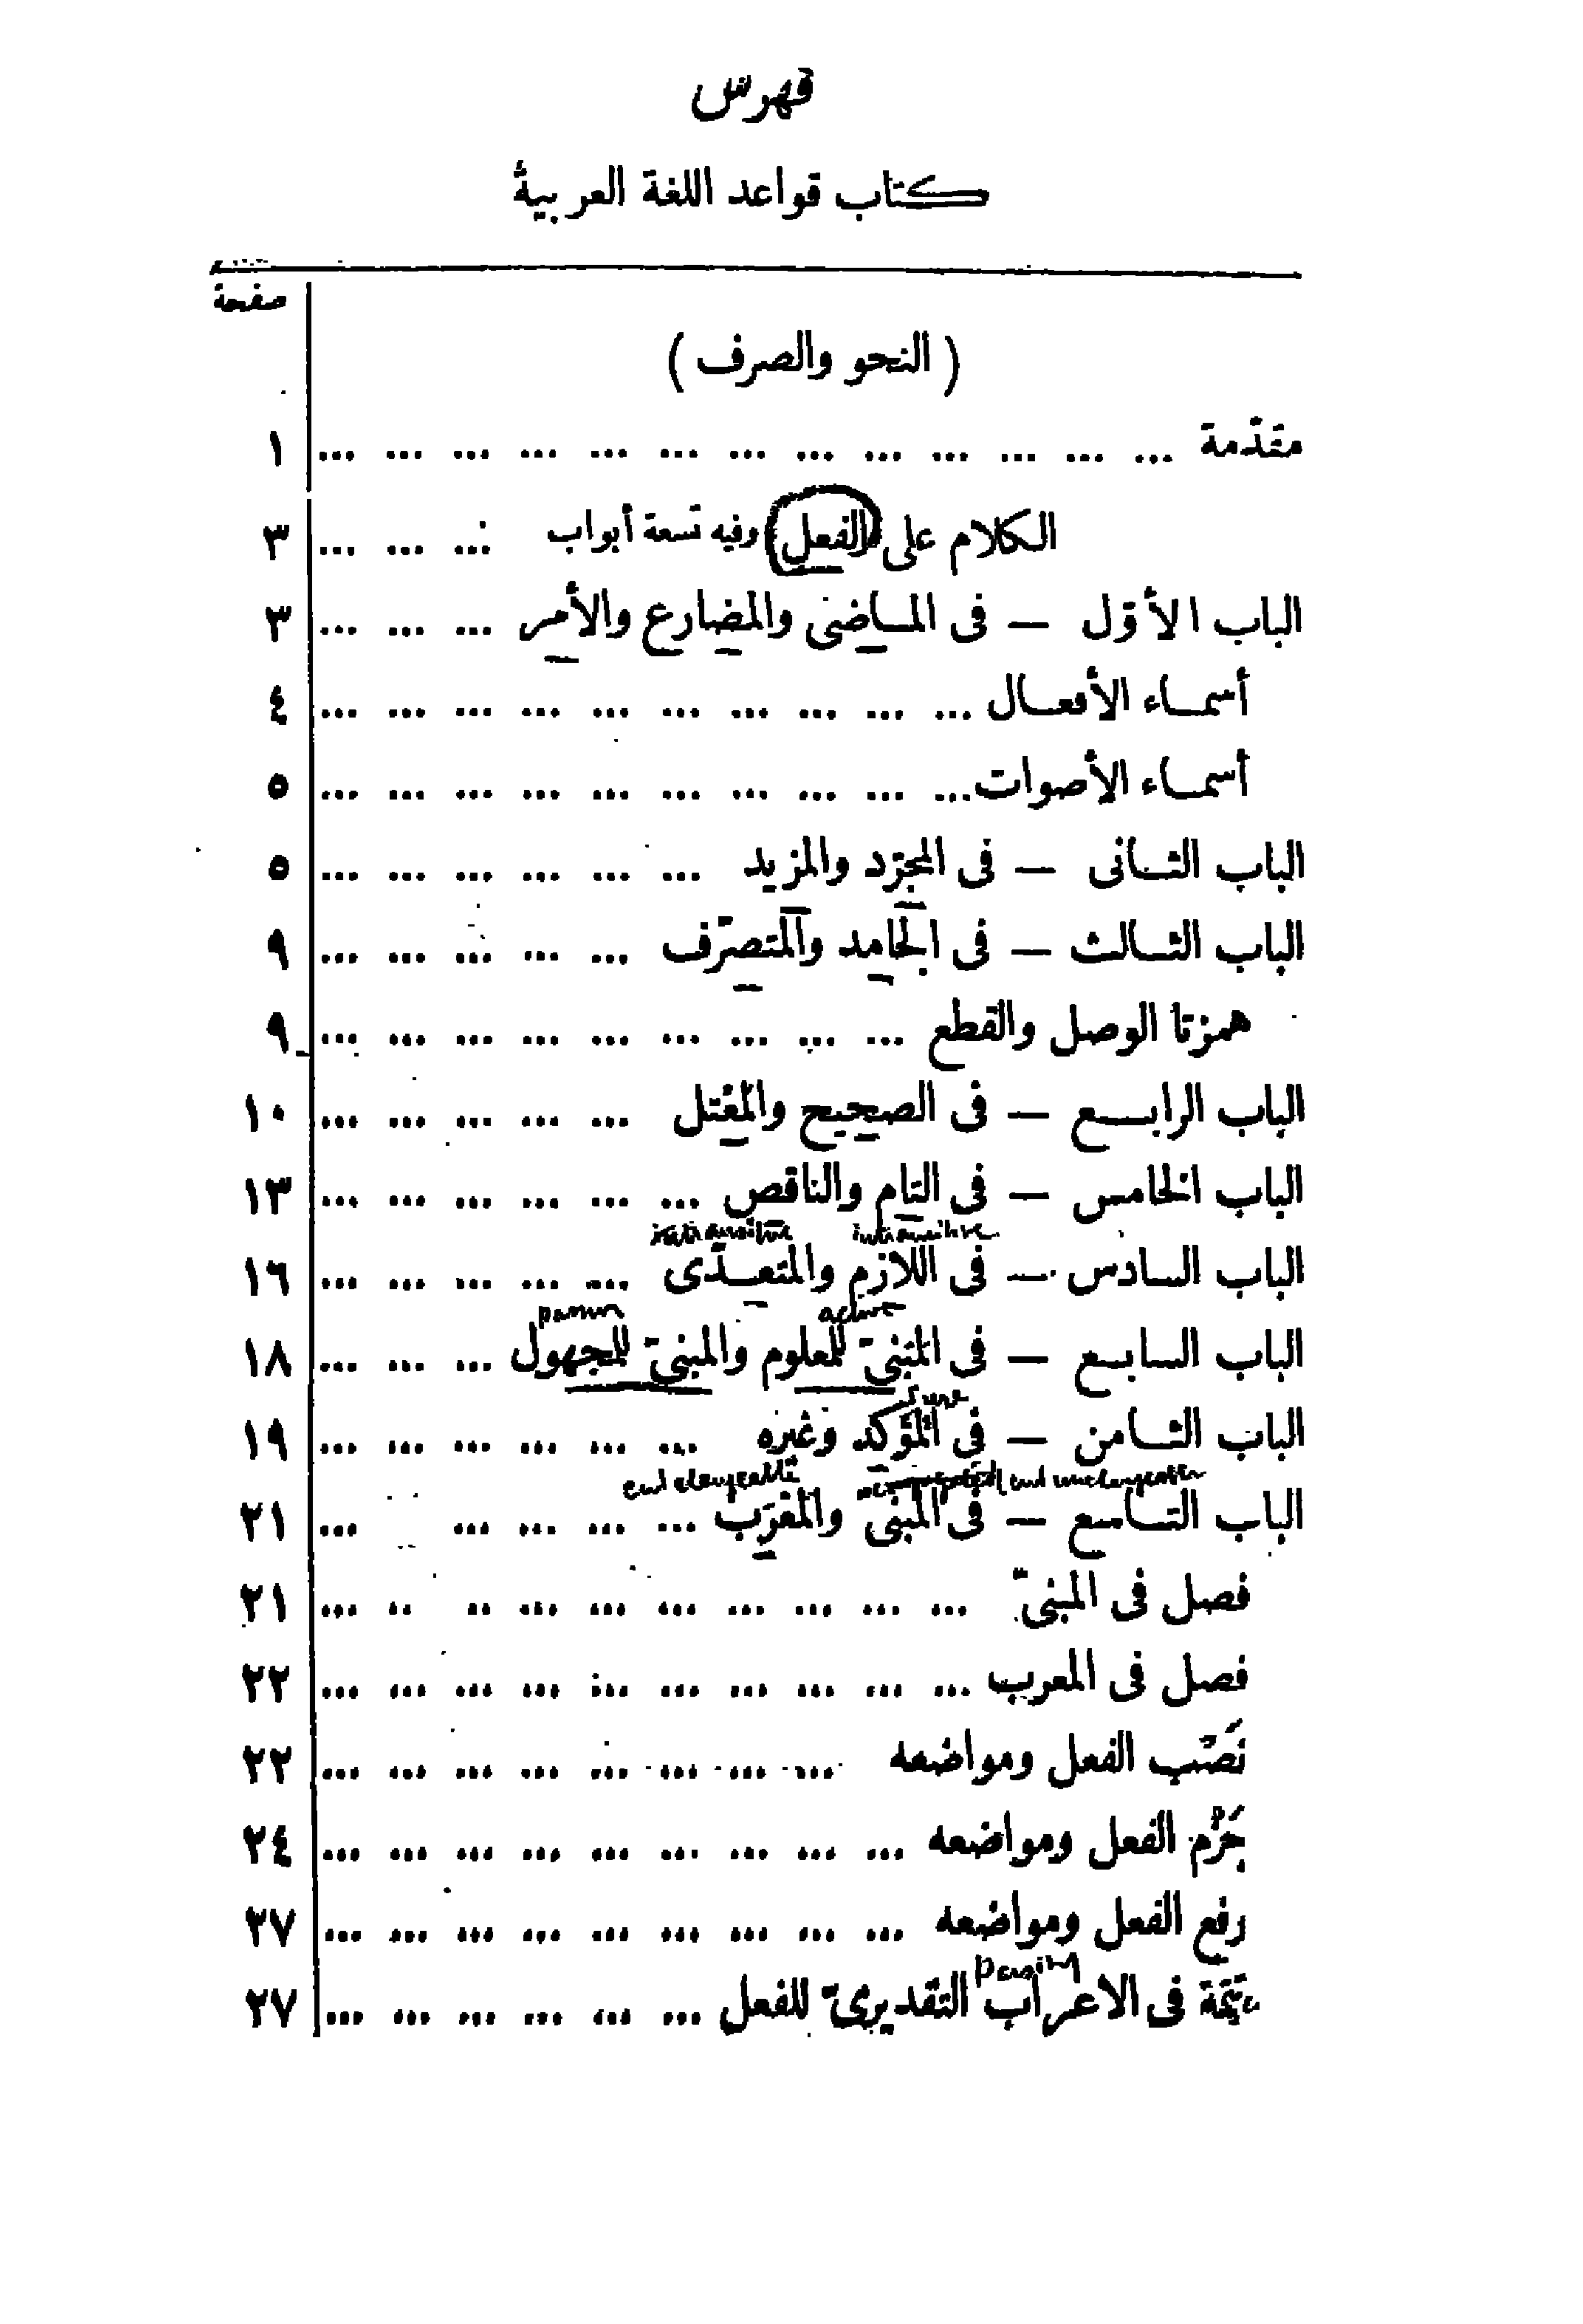 فهرس
كتاب قواعد اللغة العربية
صفحة
( النحو والصرف )
مقدّمة ... ... ... ... ... ... ... ... ... ... ... ... ... ١
الكلام على (الفعل) وفيه تسعة أبواب ... ... ... ٣
الباب الأوّل — فى المـاضى والمضارع والأمر ... ... ... ٣
أسمـاء الأفعـال ... ... ... ... ... ... ... ... ... ... ٤
أسمـاء الأصوات ... ... ... ... ... ... ... ... ... ... ٥
الباب الثـانى — فى المجرّد والمزيد ... ... ... ... ... ... ٥
الباب الثـالث — فى الجامد والمتصرّف ... ... ... ... ... ٩
همزتا الوصل والقطع ... ... ... ... ... ... ... ... ... ٩
الباب الرابـع — فى الصحيح والمعْتل ... ... ... ... ... ١٠
الباب الخامس — فى التام والناقص ... ... ... ... ... ... ١٣
intransitive
الباب السادس — فى اللازم والمتعـدّى ... ... ... ... ... ١٦
active
الباب السابـع — فى المبنىّ للمعلوم والمبنىّ للجهول ... ... ... ١٨
الباب الثـامن — فى المؤكد وغيره ... ... ... ... ... ... ١٩
end changeable end unchangeable
الباب التـاسع — فى المبنىّ والمعْرَب ... ... ... ... ... ٢١
فصل فى المبنىّ ... ... ... ... ... ... ... .. .. ... ٢١
فصل فى المعرب ... ... ... ... ... ... ... ... ... ... ٢٢
نَصْب الفعل ومواضعه ... ... ... ... ... ... ... ... ٢٢
جَزْم الفعل ومواضعه ... ... ... ... ... ... ... ... ... ٢٤
رفع الفعل ومواضعه ... ... ... ... ... ... ... ... ... ٢٧
تتمّة فى الاعراب التقديرىّ للفعل ... ... ... ... ... ... ٢٧